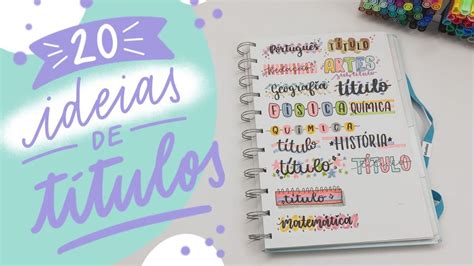 20
ideias
DE
títulos
Português TÍTULO
ARTES
título
Geografia título
FÍSICA QUÍMICA
QUÍMICA
título HISTÓRIA
título TÍTULO
título
matemática